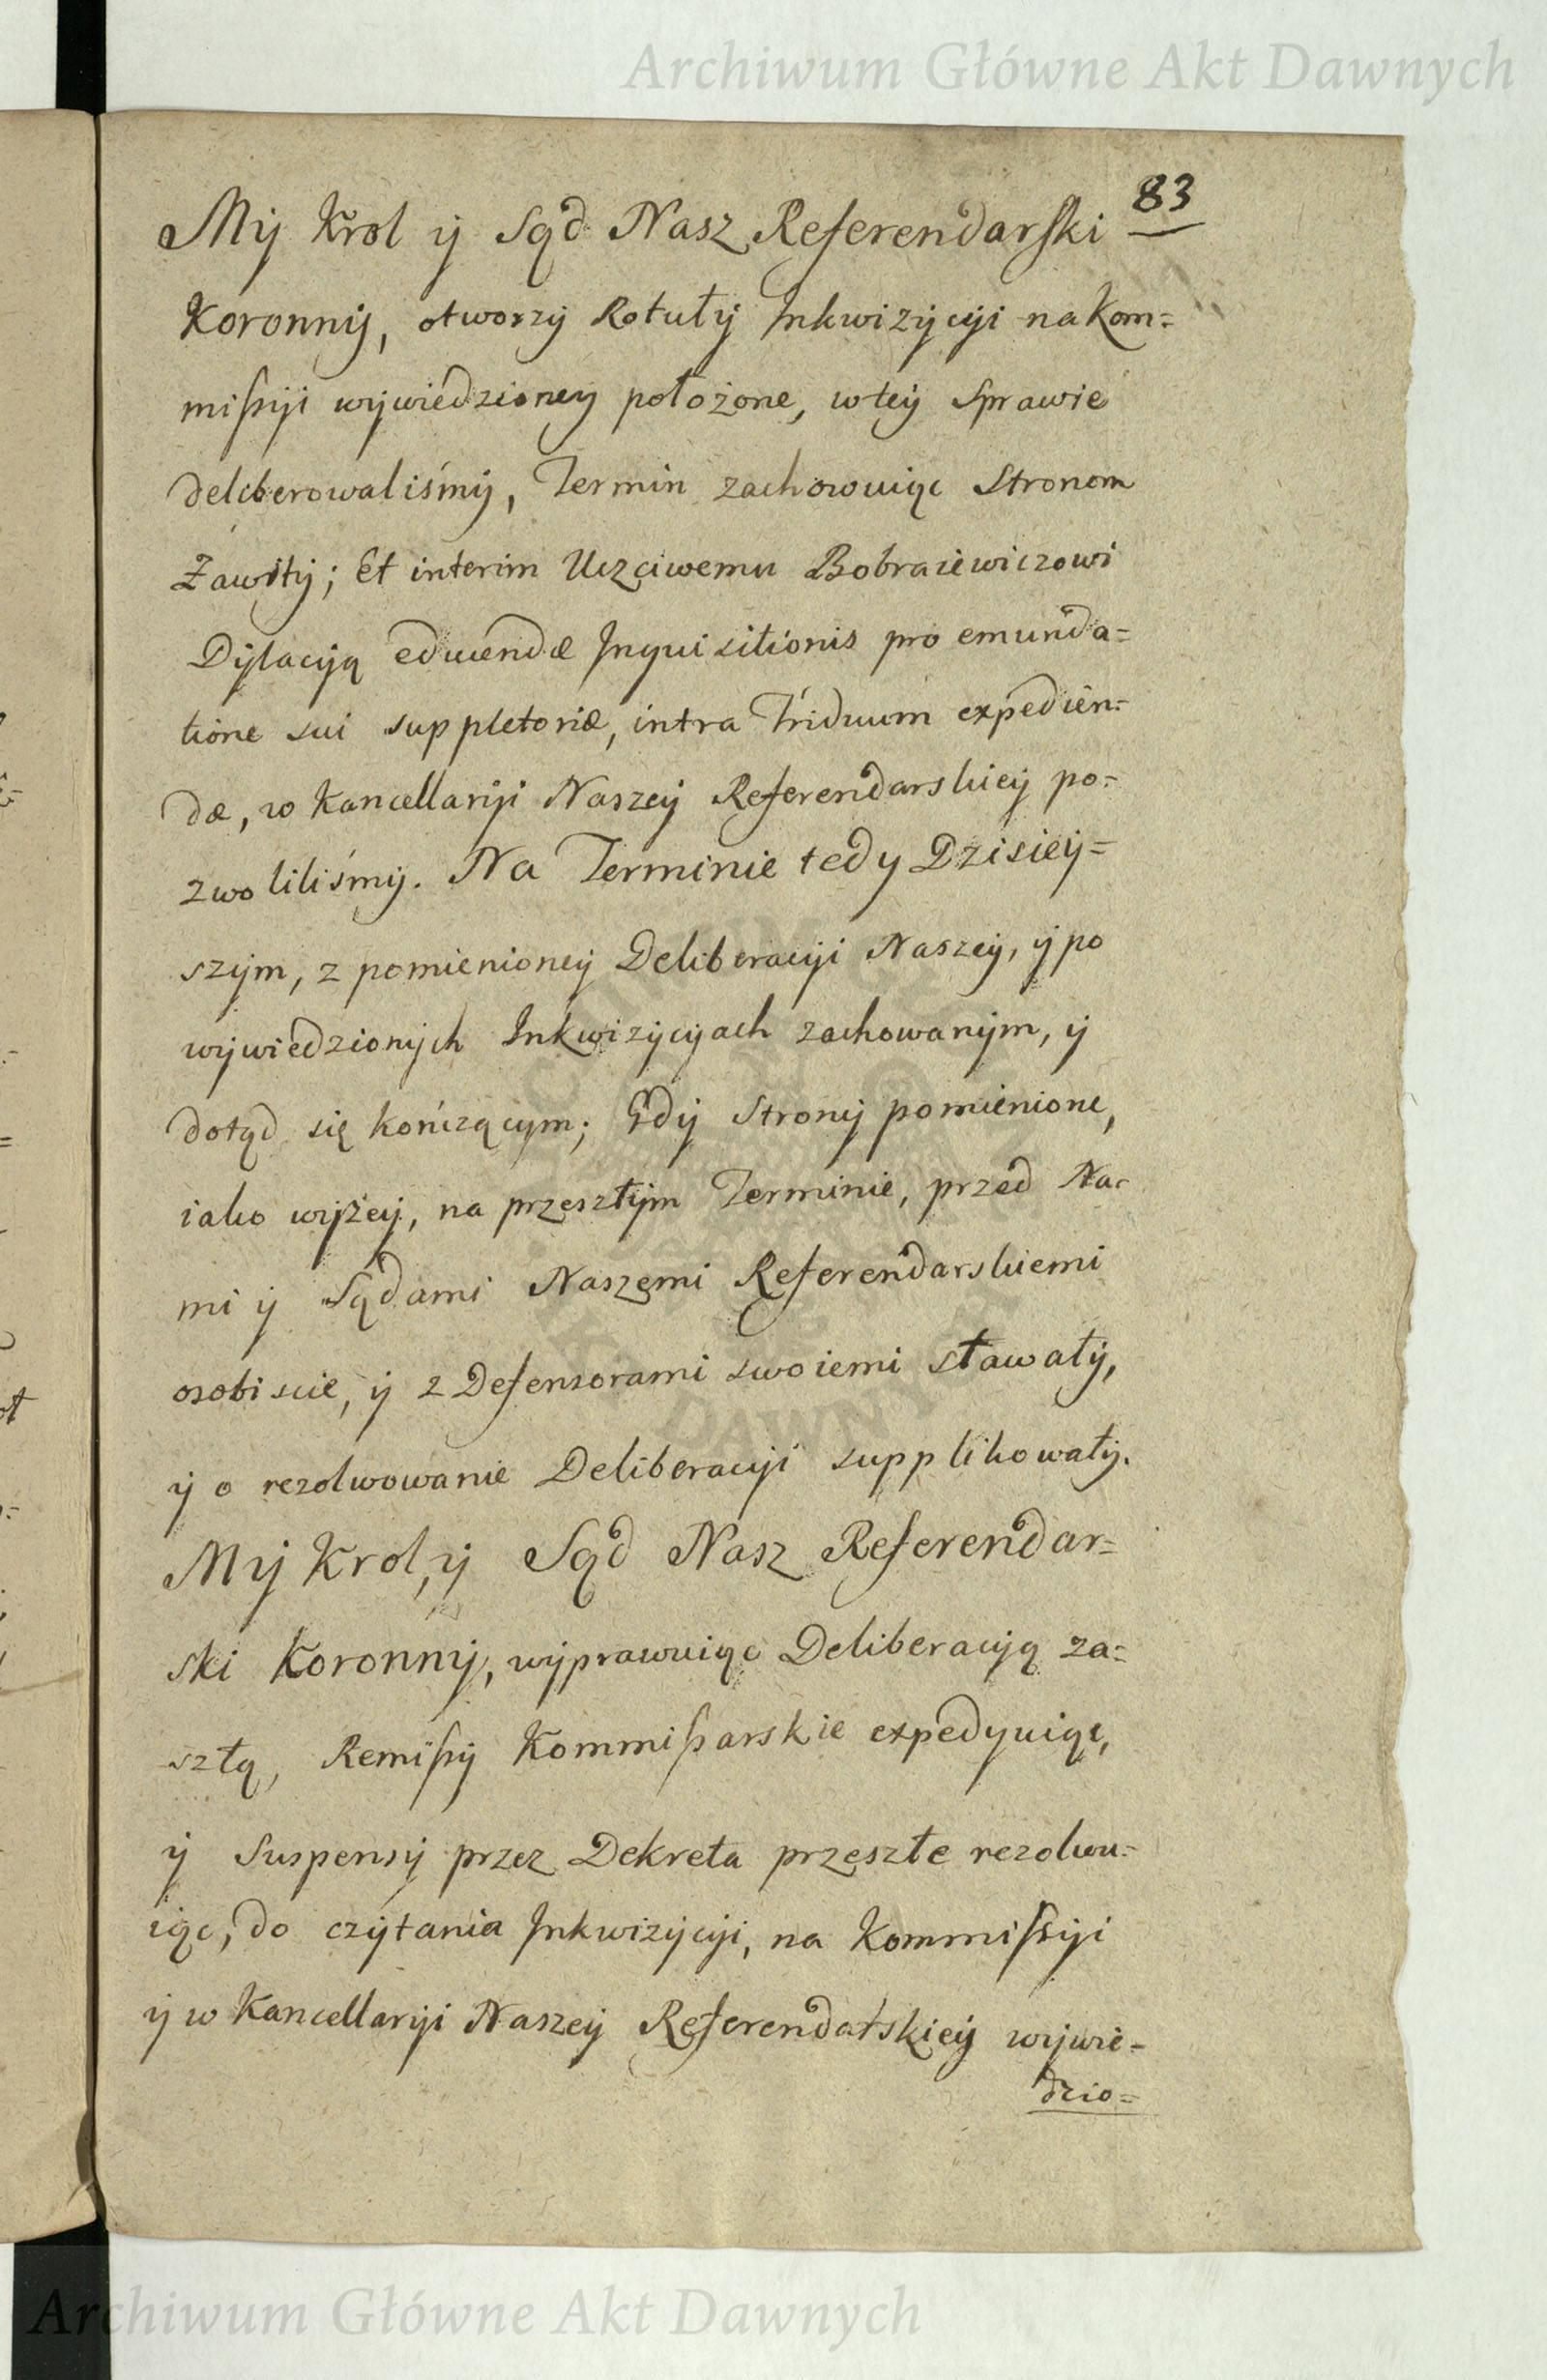 Archiwum Główne Akt Dawnych
83
My Krol y Sąd Nasz Referendarski
Koronny, otworzy Rotuły Inkwizycyi na Kom=
missyi wywiedzioney położone, w tey Sprawie
deliberowaliśmy, Termin zachowuiąc Stronom
Zawity; Et interim Uczciwemu Bobraiewiczowi
Dylacyą educendæ Inquisitionis pro emunda=
tione sui suppletoriæ, intra Triduum expedien=
dæ, w Kancellaryi Naszey Referendarskiey po=
zwoliliśmy. Na Terminie tedy Dzisiey=
szym, z pomienioney Deliberacyi Naszey, y po
wywiedzionych Inkwizycyach zachowanym, y
dotąd się kończącym; Gdy Strony pomienione,
iako wyżey, na przeszłym Terminie, przed Na=
mi y Sądami Naszemi Referendarskiemi
osobiscie, y z Defensorami swoiemi stawały,
y o rezolwowanie Deliberacyi supplikowały.
My Krol, y Sąd Nasz Referendar=
ski Koronny, wyprawuiąc Deliberacyą za=
szłą, Remissy Kommissarskie expedyuiąc,
y Suspensy przez Dekreta przeszłe rezolwu=
iąc, do czytania Inkwizycyi, na Kommissyi
y w Kancellaryi Naszey Referendarskiey wywie=
dzio=
Archiwum Główne Akt Dawnych